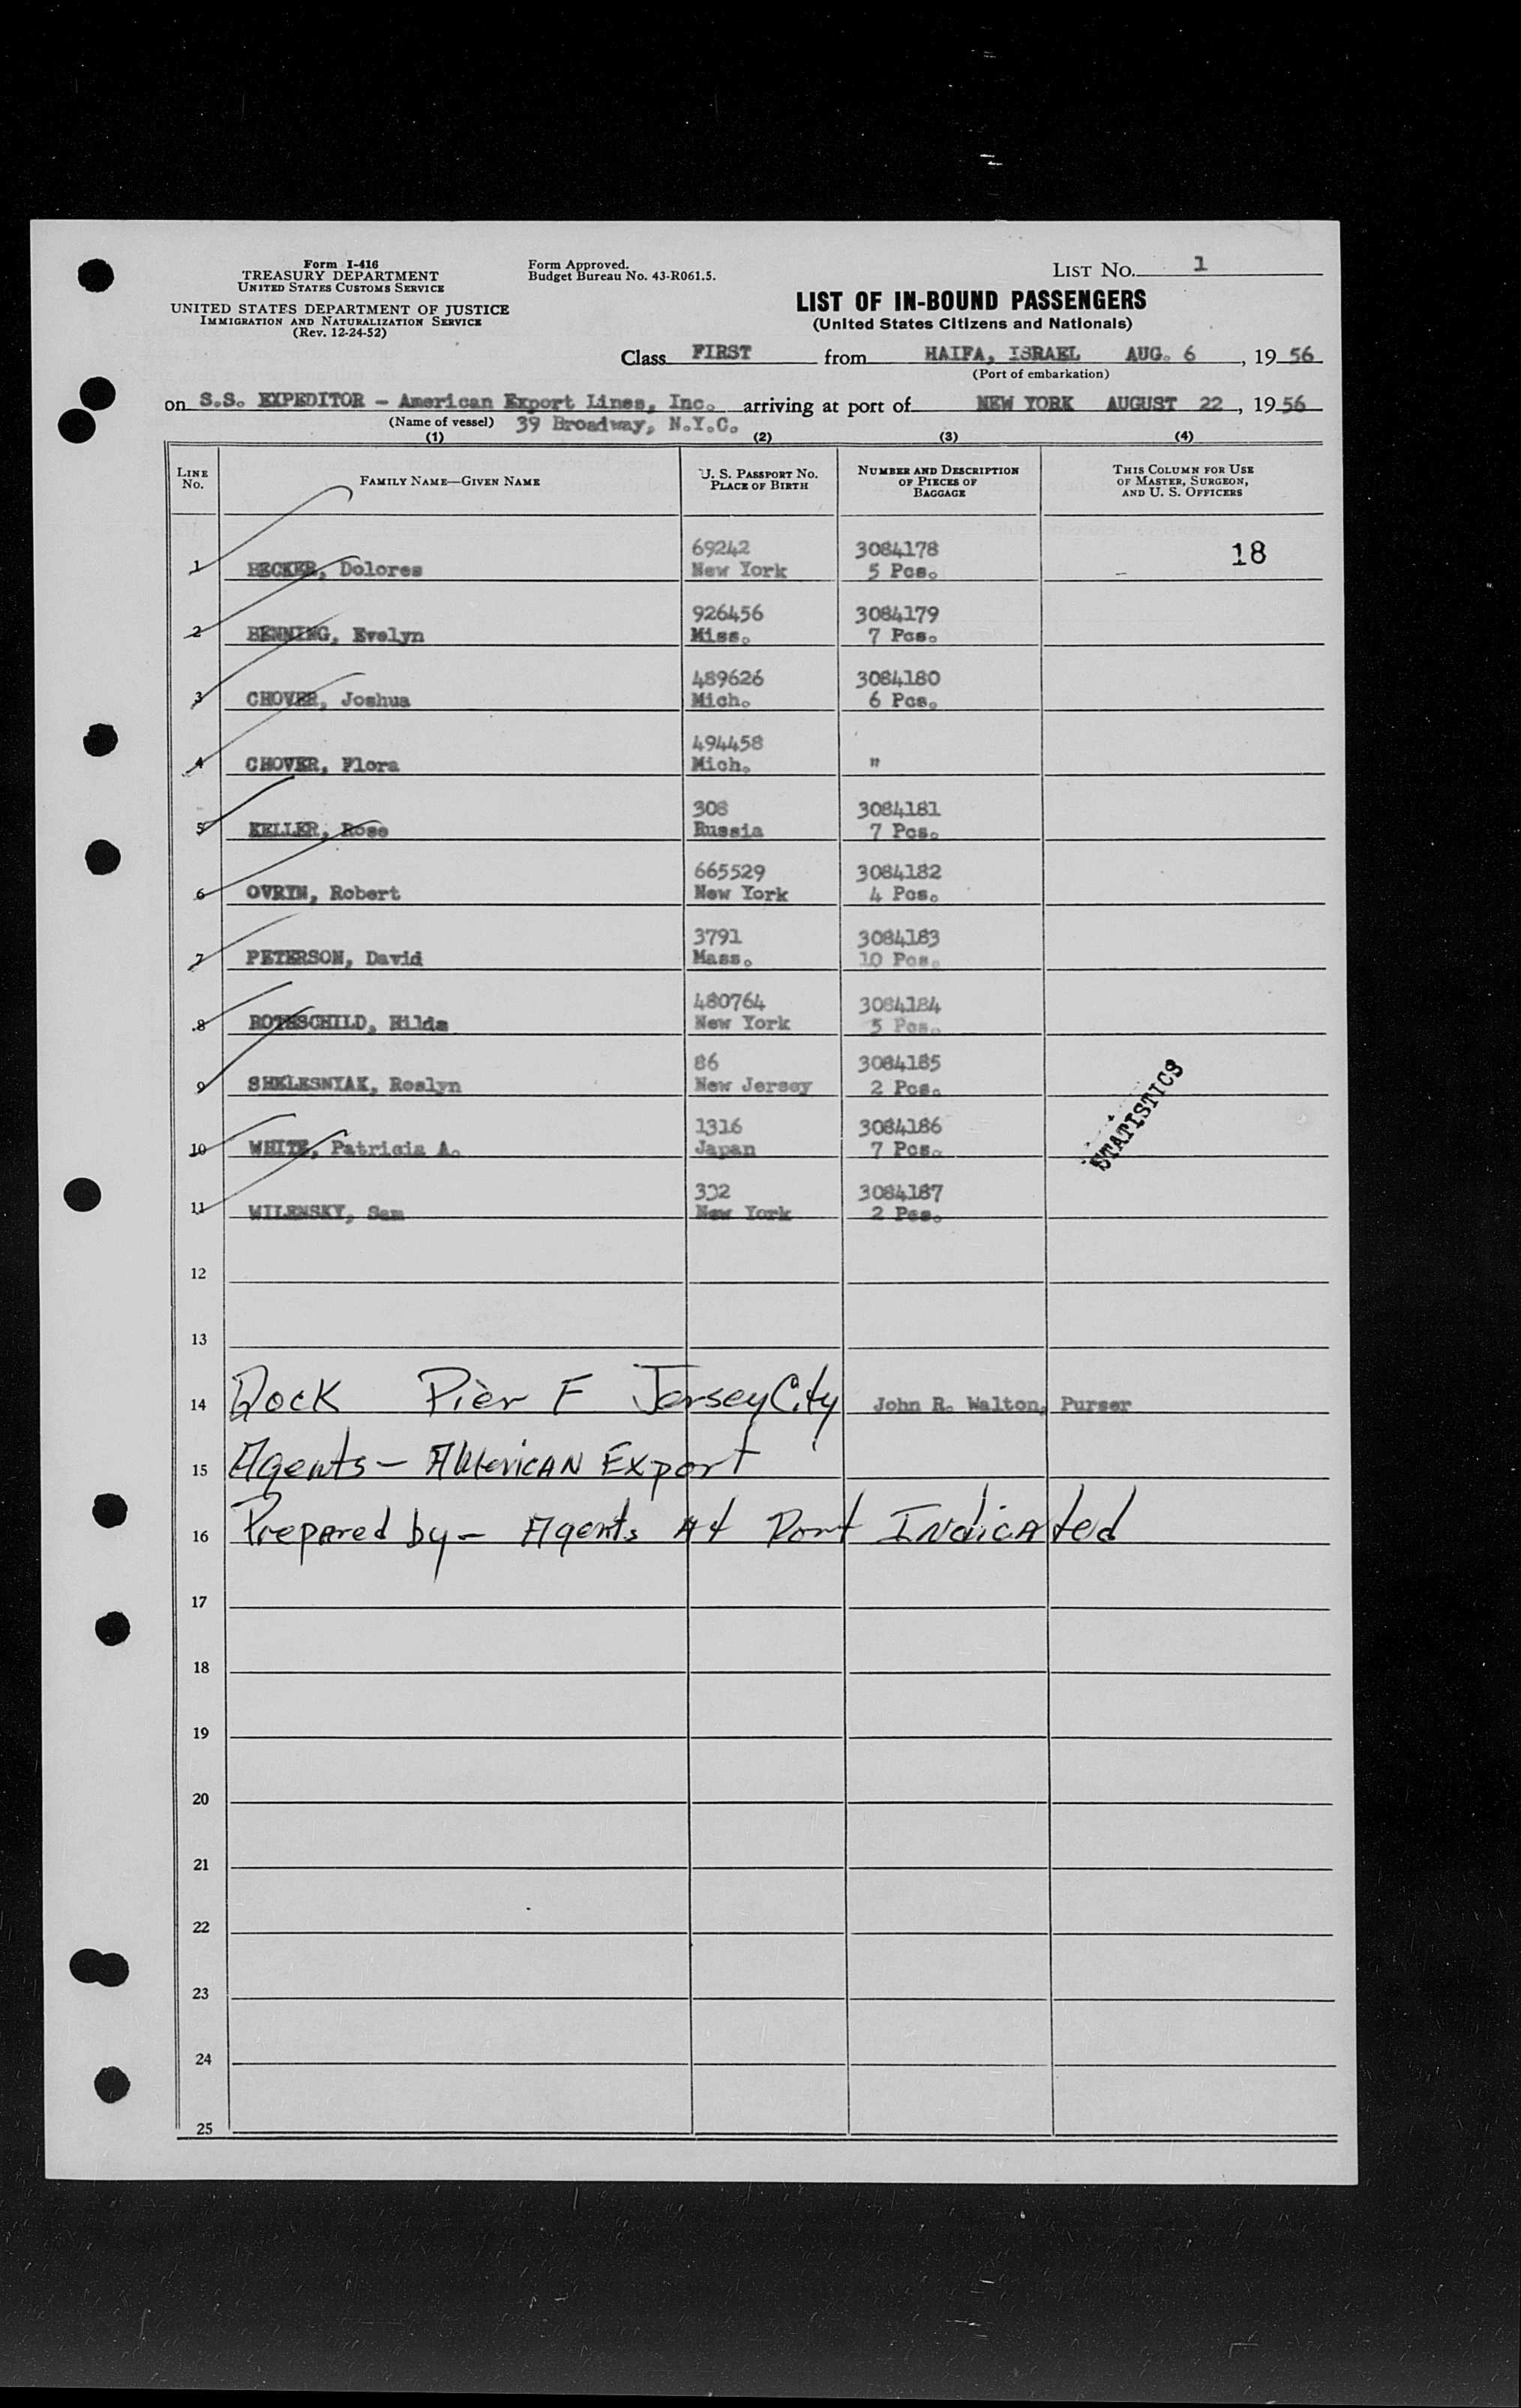 Form I-416
TREASURY DEPARTMENT
UNITED STATES CUSTOMS SERVICE
UNITED STATES DEPARTMENT OF JUSTICE
IMMIGRATION AND NATURALIZATION SERVICE
(Rev. 12-24-52)
Form Approved.
Budget Bureau No. 43-R061.5.
LIST NO. 1
LIST OF IN-BOUND PASSENGERS
(United States Citizens and Nationals)
Class FIRST from HAIFA, ISRAEL AUG. 6, 1956
(Port of embarkation)
on S.S. EXPEDITOR - American Export Lines, Inc. arriving at port of NEW YORK AUGUST 22, 1956
(Name of vessel) 39 Broadway, N.Y.C.
(1) (2) (3) (4)
LINE NO. FAMILY NAME—GIVEN NAME U. S. PASSPORT NO. PLACE OF BIRTH NUMBER AND DESCRIPTION OF PIECES OF BAGGAGE THIS COLUMN FOR USE OF MASTER, SURGEON, AND U. S. OFFICERS
69242 3084178 18
1 BECKER, Dolores New York 5 Pcs.
926456 3084179
2 BENNING, Evelyn Miss. 7 Pcs.
489626 3084180
3 CHOVER, Joshua Mich. 6 Pcs.
494458
4 CHOVER, Flora Mich. "
308 3084181
5 KELLER, Rose Russia 7 Pcs.
665529 3084182
6 OVRYN, Robert New York 4 Pcs.
3791 3084183
7 PETERSON, David Mass. 10 Pcs.
480764 3084184
8 ROTHSCHILD, Hilda New York 5 Pcs.
86 3084185
9 SHELESNYAK, Roslyn New Jersey 2 Pcs.
STATISTICS
1316 3084186
10 WHITE, Patricia A. Japan 7 Pcs.
332 3084187
11 WILENSKY, Sam New York 2 Pcs.
12
13
14 Dock Pier F Jersey City John R. Walton, Purser
15 Agents - American Export
16 Prepared by - Agents At Port Indicated
17
18
19
20
21
22
23
24
25